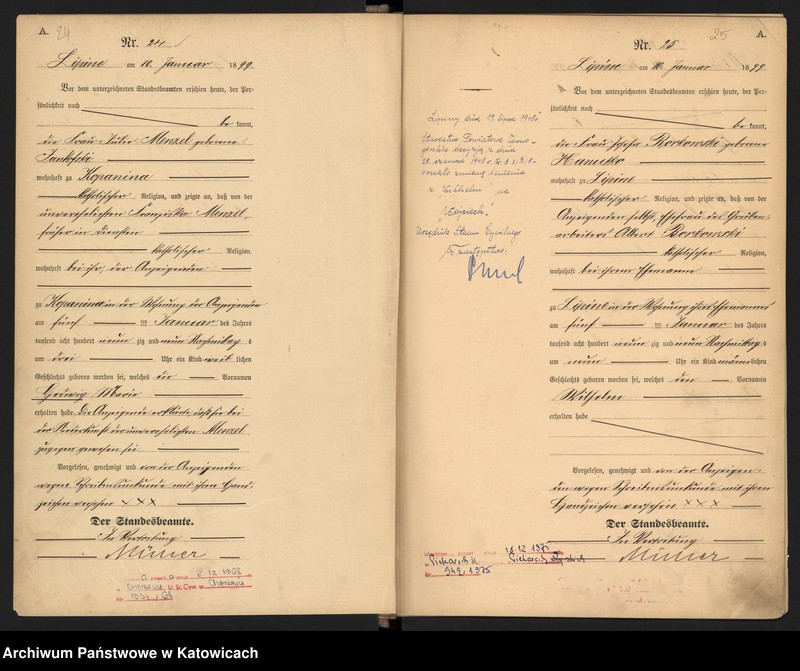 A. 24
Nr. 24.
Lipine am 10. Januar 1899.
Vor dem unterzeichneten Standesbeamten erschien heute, der Per-
sönlichkeit nach
be kannt,
die Frau Julie Menzel geborene
wohnhaft zu Kopanina
katholischer Religion, und zeigte an, daß von der
unverehelichten Franziska Menzel,
früher in Diensten
katholischer Religion,
wohnhaft bei ihr, der Anzeigenden
zu Kopanina in der Wohnung der Anzeigenden
am fünf ten Januar des Jahres
tausend acht hundert neun zig und neun Nachmittag s
um drei Uhr ein Kind weib lichen
Geschlechts geboren worden sei, welches die Vornamen
Hedwig Marie
erhalten habe. Die Anzeigende erklärte, daß sie bei
der Niederkunft der unverehelichten Menzel
zugegen gewesen sei
Vorgelesen, genehmigt und von der Anzeigenden
wegen Schreibensunkunde mit ihren Hand-
zeichen versehen XXX
Der Standesbeamte.
In Vertretung
Müller
12 1968
Chorzow
25 A.
Nr. 25
Lipine am 10. Januar 1899
Vor dem unterzeichneten Standesbeamten erschien heute, der Per-
sönlichkeit nach
be kannt,
die Frau Josefa Borkowski geborene
wohnhaft zu Lipine
katholischer Religion, und zeigte an, daß von der
Anzeigenden selbst, Ehefrau des Gruben-
arbeiters Albert Borkowski
katholischer Religion,
wohnhaft bei ihrem Ehemann
zu Lipine in der Wohnung ihres Ehemannes
am fünf ten Januar des Jahres
tausend acht hundert neun zig und neun Nachmittag s
um neun Uhr ein Kind männ lichen
Geschlechts geboren worden sei, welches den Vornamen
Wilhelm
erhalten habe
Vorgelesen, genehmigt und von der Anzeigen-
den wegen Schreibensunkunde mit ihrem
Handzeichen versehen XXX
Der Standesbeamte.
In Vertretung
Müller
Lipiny dnia 19 lipca 1948
Starostwo Powiatowe
decyzją z dnia
zmianę imienia
z "Wilhelm" na
"Wojciech".
Urzędnik Stanu Cywilnego
w zastępstwie:
12 1975
Archiwum Państwowe w Katowicach